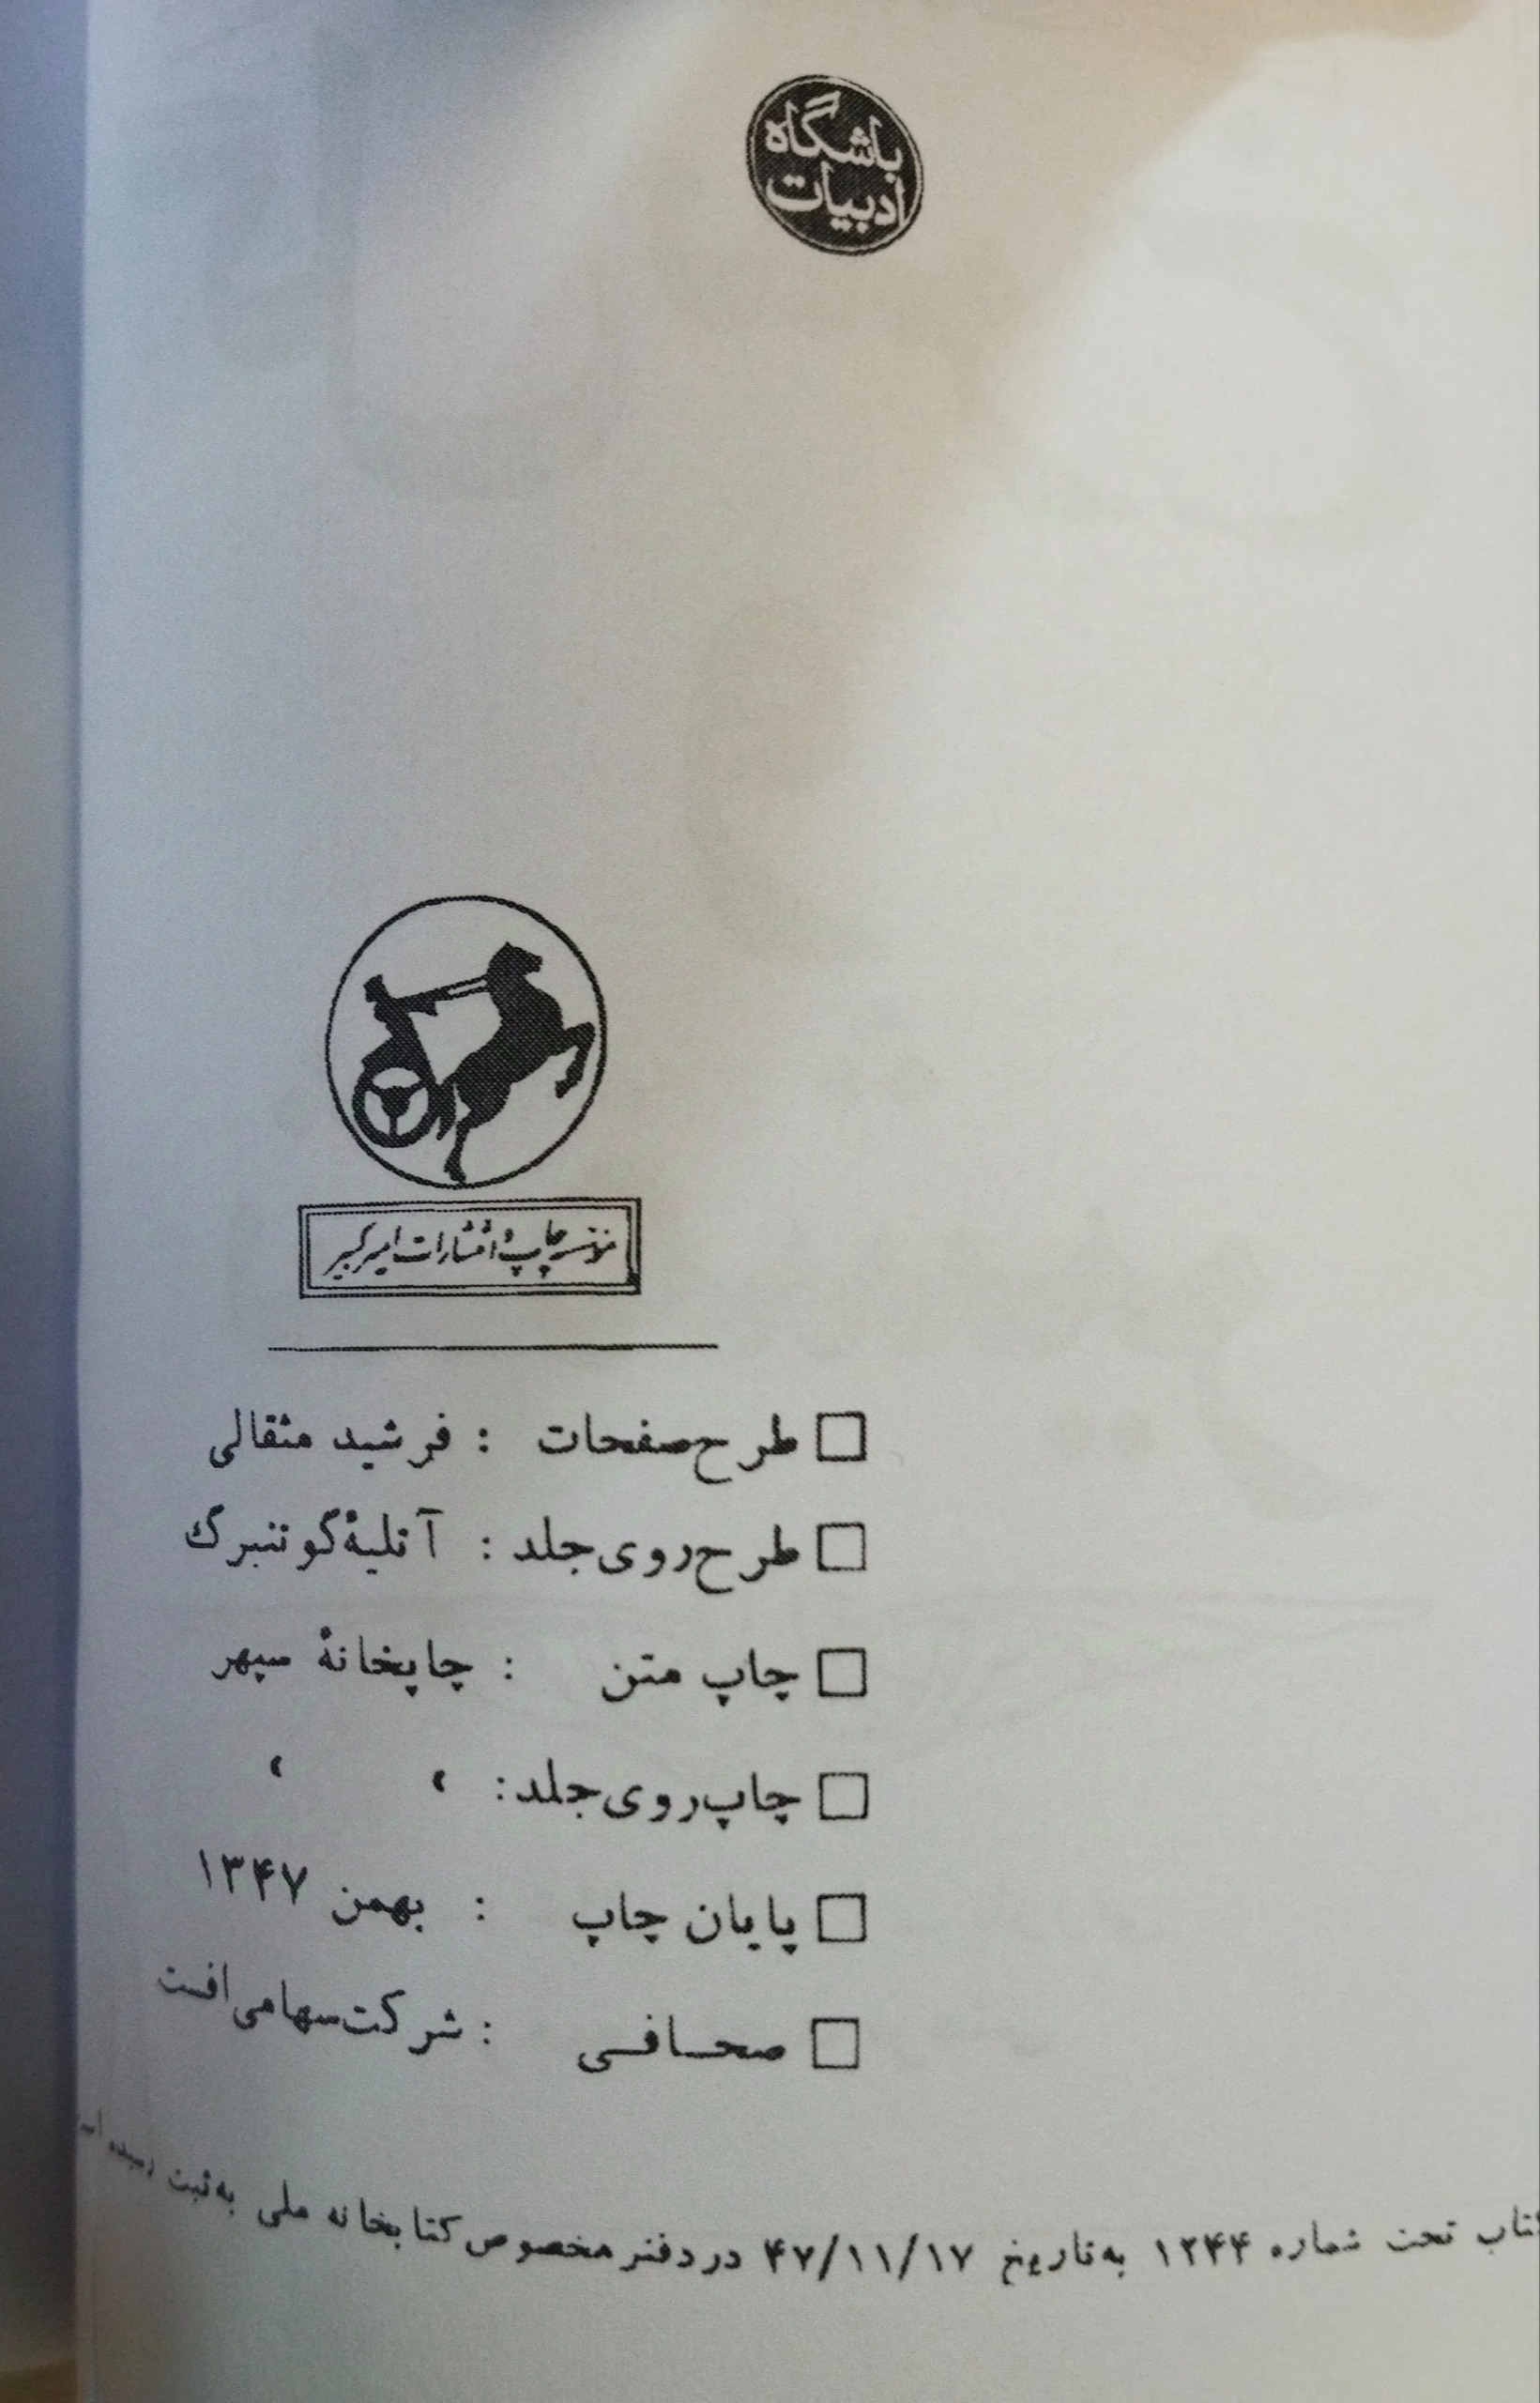 باشگاه
ادبیات
مؤسسه چاپ و انتشارات امیرکبیر
طرح صفحات : فرشید مثقالی
طرح روی جلد : آتلیهٔ گوتنبرگ
چاپ متن : چاپخانهٔ سپهر
چاپ روی جلد : ، ،
پایان چاپ : بهمن ۱۳۴۷
صحافی : شرکت سهامی افست
تحت شماره ۱۲۴۴ به تاریخ ۴۷/۱۱/۱۷ در دفتر مخصوص کتابخانه ملی به ثبت رسیده